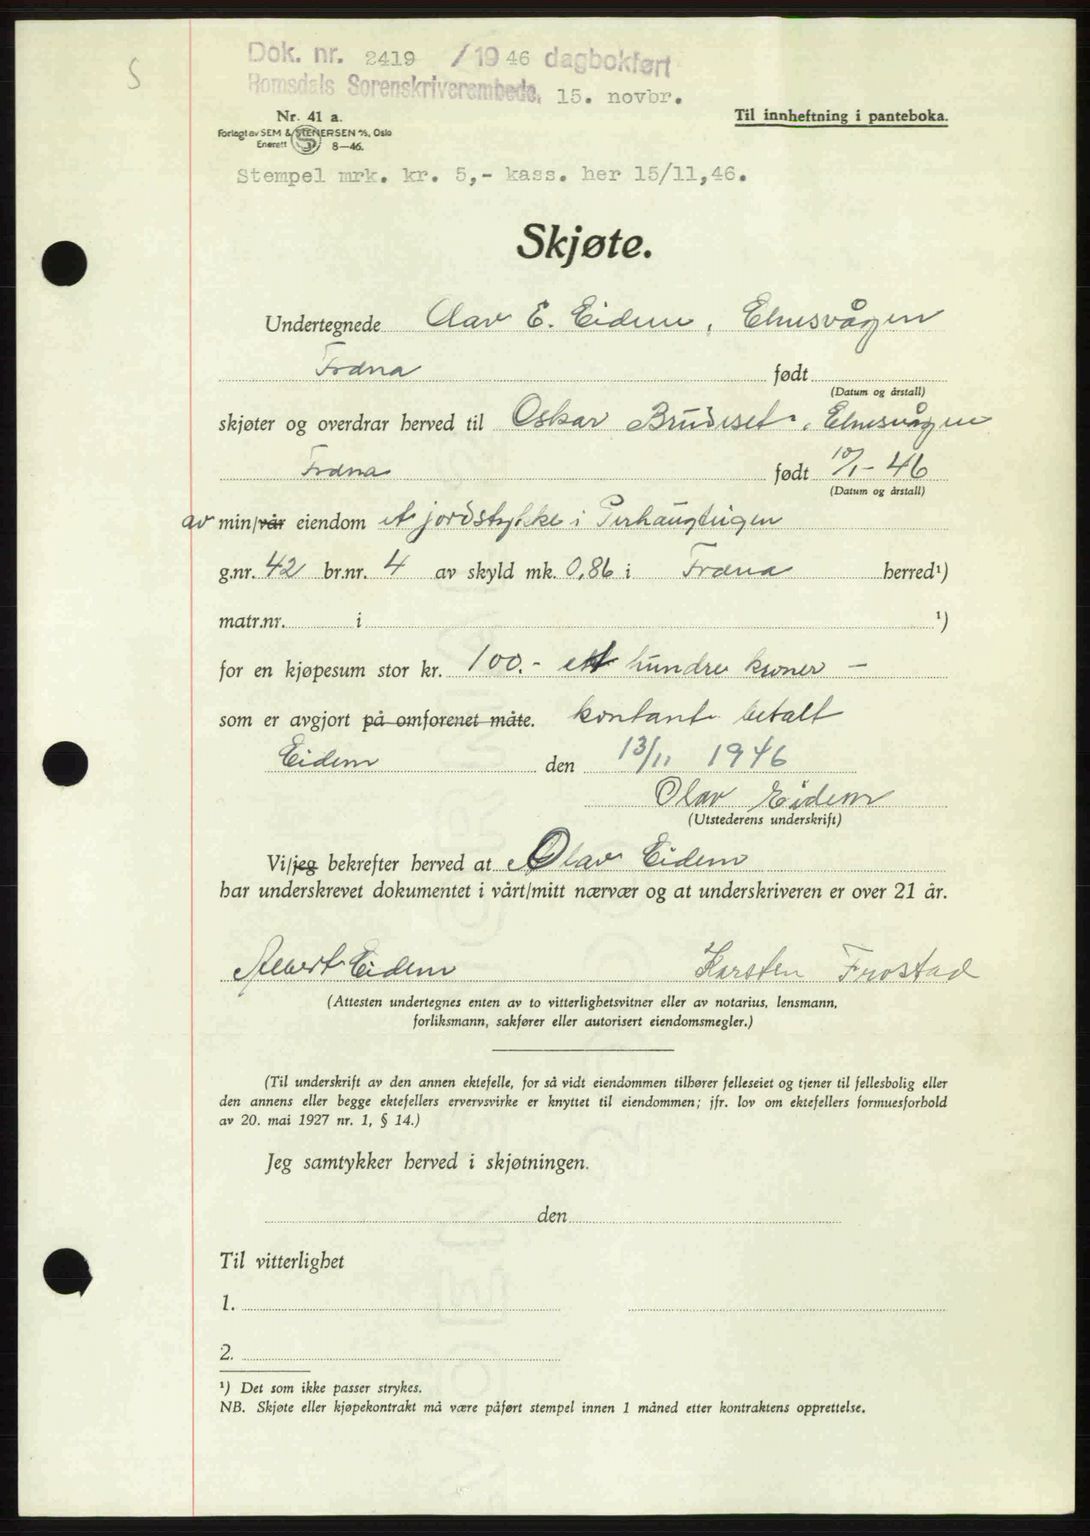 S
Dok. nr. 2419 /1946 dagbokført
Romsdals Sorenskriverembede, 15. novbr.
Nr. 41 a.
Forlagt av SEM & STENERSEN A/S, Oslo
Enerett 8-46.
Til innheftning i panteboka.
Stempel mrk. kr. 5,- kass. her 15/11,46.
Skjøte.
Undertegnede Olav E. Eidem, Elnesvågen
Fræna født
(Datum og årstall)
skjøter og overdrar herved til Oskar Brudeset, Elnesvågen
Fræna født 10/1-46
(Datum og årstall)
av min/vår eiendom et jordstykke i
g.nr. 42 br.nr. 4 av skyld mk. 0,86 i Fræna herred¹)
matr.nr. i ¹)
for en kjøpesum stor kr. 100.- ett hundre kroner —
som er avgjort på omforenet måte. kontant betalt
Eidem den 13/11 1946
Olav Eidem
(Utstederens underskrift)
Vi/jeg bekrefter herved at Olav Eidem
har underskrevet dokumentet i vårt/mitt nærvær og at underskriveren er over 21 år.
Albert Eidem Karsten Frostad
(Attesten undertegnes enten av to vitterlighetsvitner eller av notarius, lensmann,
forliksmann, sakfører eller autorisert eiendomsmegler.)
(Til underskrift av den annen ektefelle, for så vidt eiendommen tilhører felleseiet og tjener til fellesbolig eller
den annens eller begge ektefellers ervervsvirke er knyttet til eiendommen; jfr. lov om ektefellers formuesforhold
av 20. mai 1927 nr. 1, § 14.)
Jeg samtykker herved i skjøtningen.
den
Til vitterlighet
1.
2.
¹) Det som ikke passer strykes.
NB. Skjøte eller kjøpekontrakt må være påført stempel innen 1 måned etter kontraktens opprettelse.